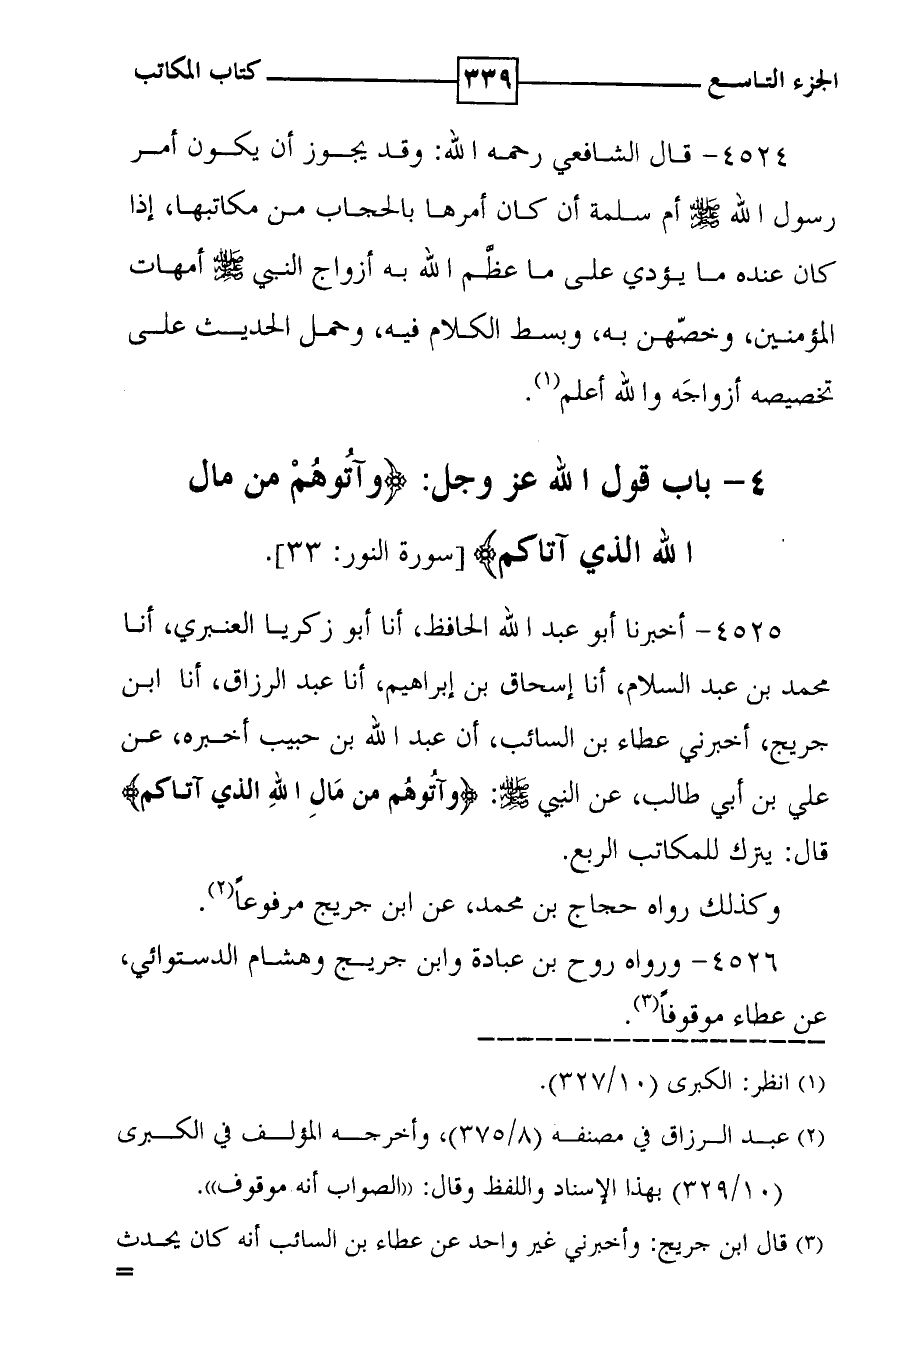 الجزء التاسع ٣٣٩ كتاب المكاتب
٤٥٢٤- قال الشافعي رحمه الله: وقد يجوز أن يكون أمر
رسول الله ﷺ أم سلمة أن كان أمرها بالحجاب من مكاتبها، إذا
كان عنده ما يؤدي على ما عظَّم الله به أزواج النبي ﷺ أمهات
المؤمنين، وخصّهن به، وبسط الكلام فيه، وحمل الحديث على
تخصيصه أزواجَه والله أعلم(١).
٤- باب قول الله عز وجل: ﴿وآتُوهُمْ من مال
الله الذي آتاكم﴾ [سورة النور: ٣٣].
٤٥٢٥- أخبرنا أبو عبد الله الحافظ، أنا أبو زكريا العنبري، أنا
محمد بن عبد السلام، أنا إسحاق بن إبراهيم، أنا عبد الرزاق، أنا ابن
جريج، أخبرني عطاء بن السائب، أن عبد الله بن حبيب أخبره، عن
علي بن أبي طالب، عن النبي ﷺ: ﴿وآتُوهُم من مَالِ اللهِ الذي آتاكم﴾
قال: يترك للمكاتب الربع.
وكذلك رواه حجاج بن محمد، عن ابن جريج مرفوعاً(٢).
٤٥٢٦- ورواه روح بن عبادة وابن جريج وهشام الدستوائي،
عن عطاء موقوفاً(٣).
(١) انظر: الكبرى (٣٢٧/١٠).
(٢) عبد الرزاق في مصنفه (٣٧٥/٨)، وأخرجه المؤلف في الكبرى
(٣٢٩/١٠) بهذا الإسناد واللفظ وقال: ((الصواب أنه موقوف)).
(٣) قال ابن جريج: وأخبرني غير واحد عن عطاء بن السائب أنه كان يحدث
=